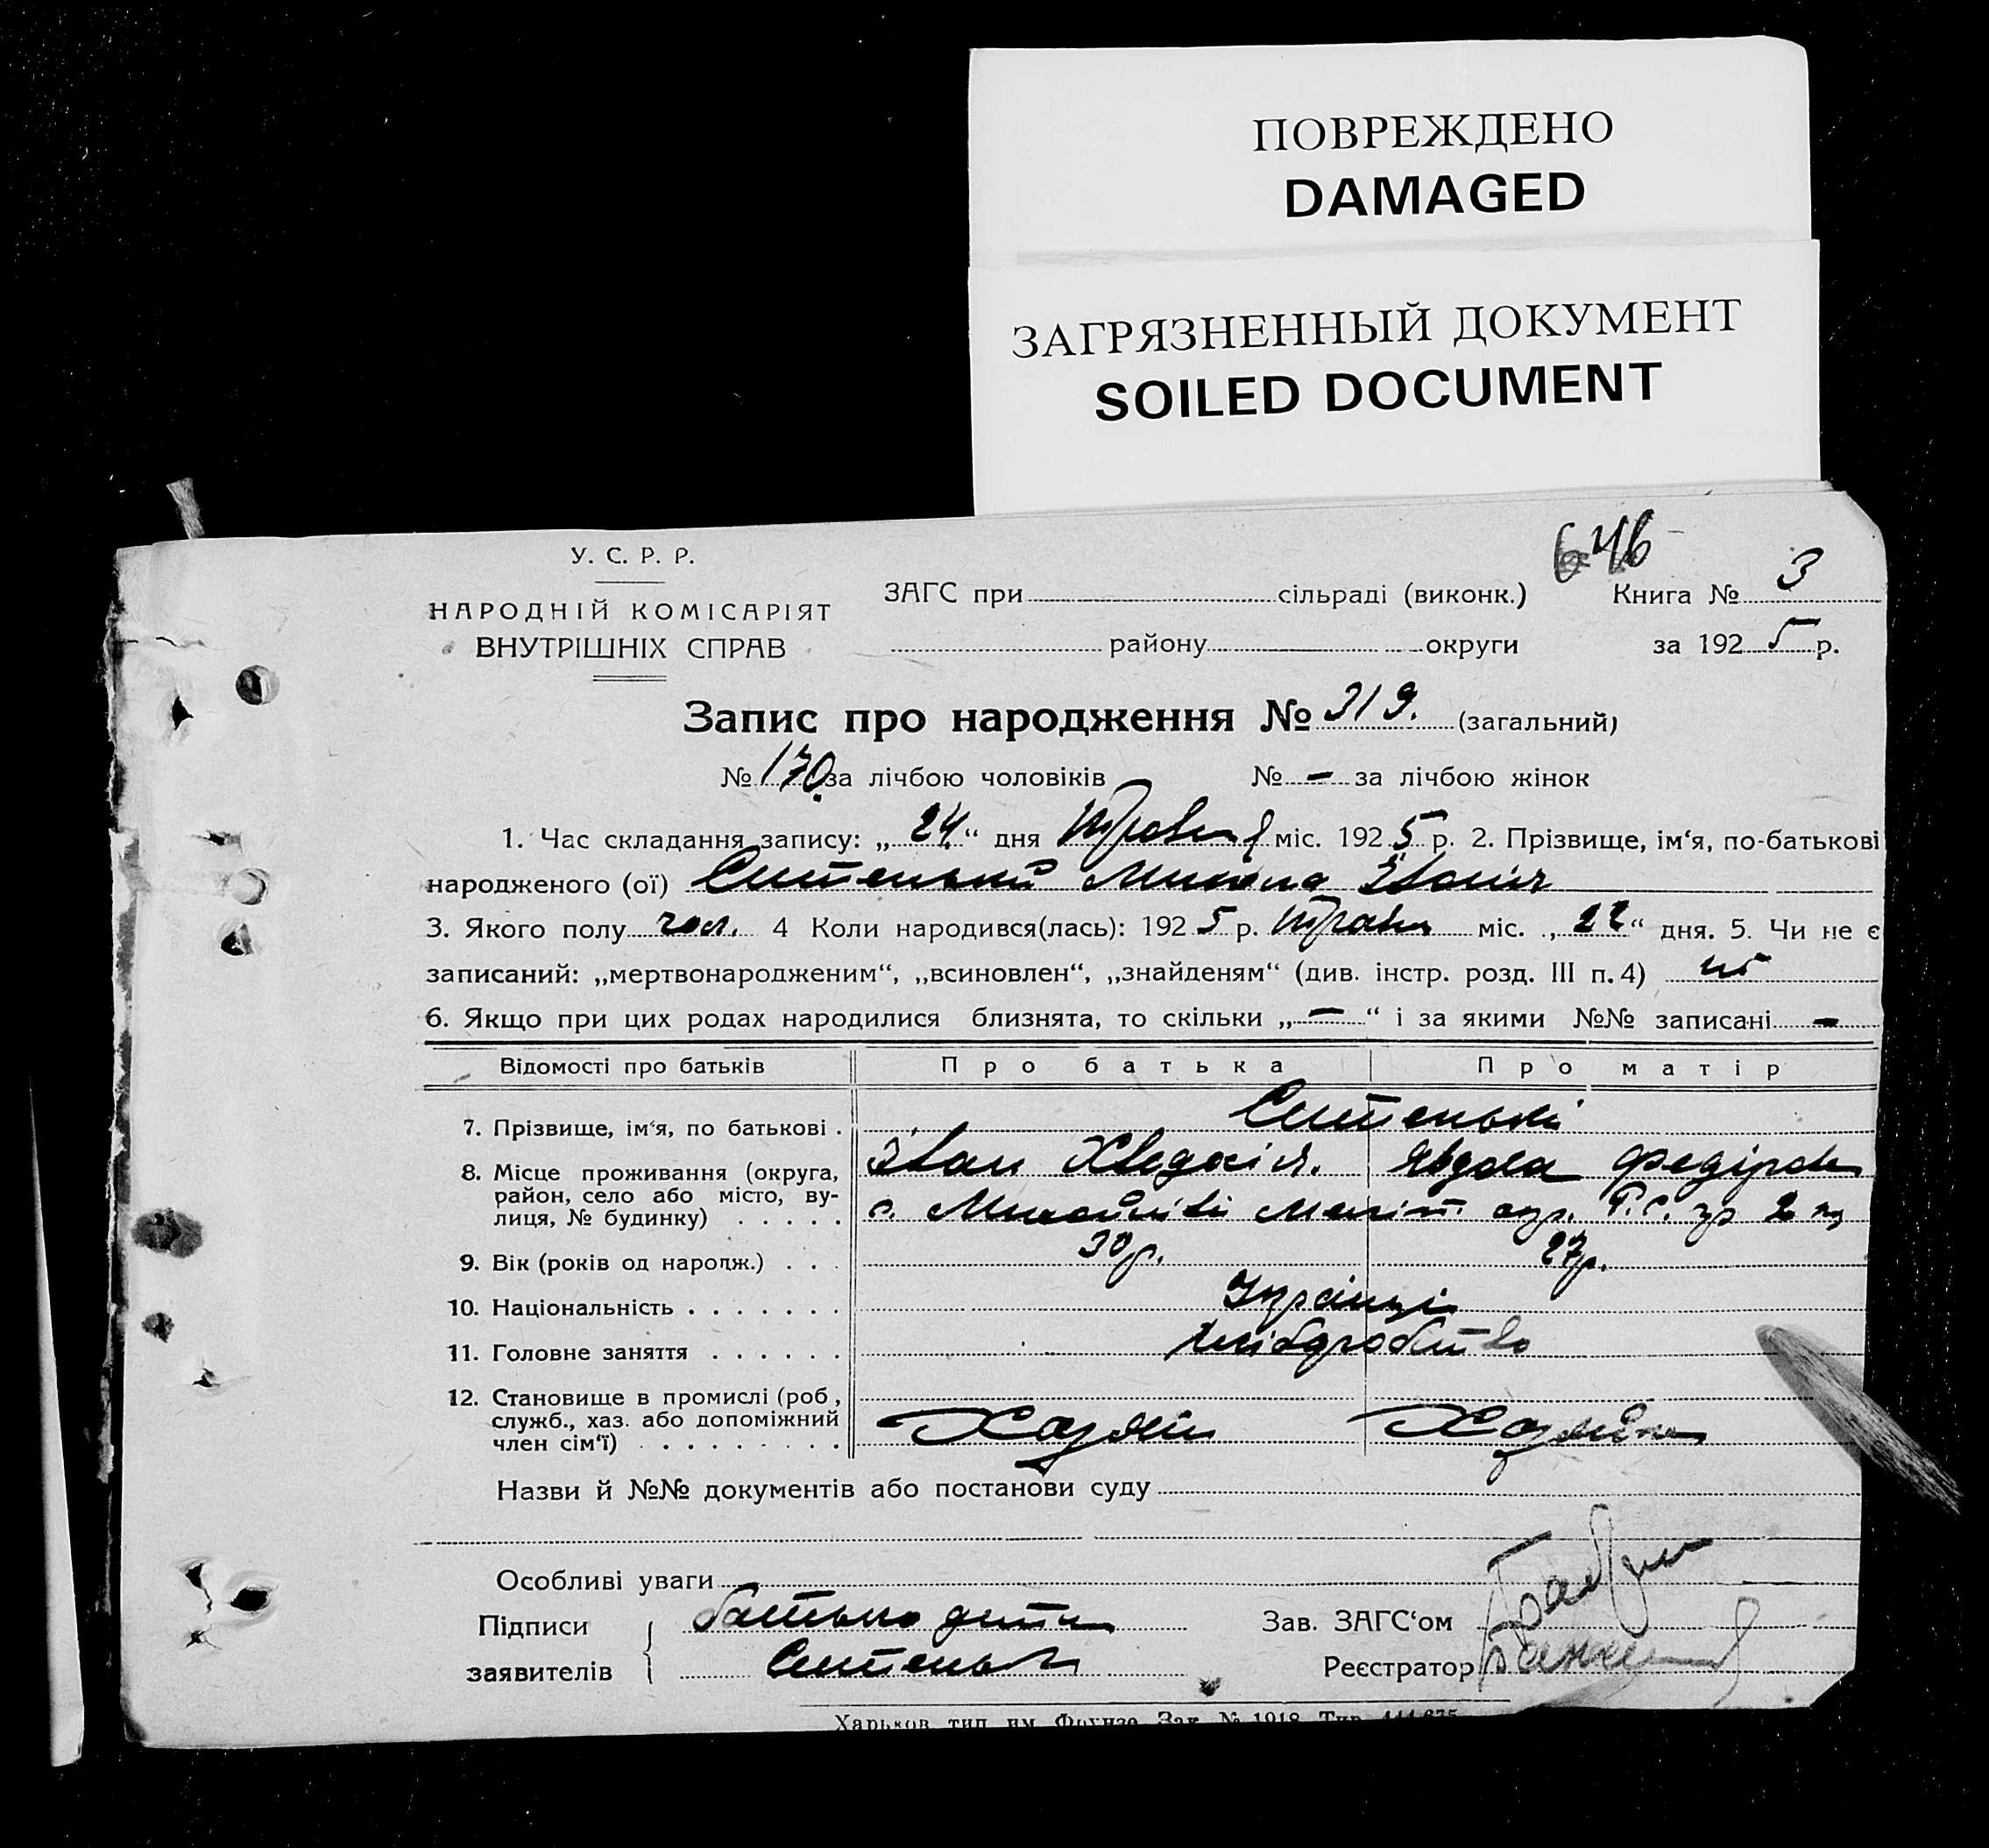 ПОВРЕЖДЕНО
DAMAGED
ЗАГРЯЗНЕННЫЙ ДОКУМЕНТ
SOILED DOCUMENT
646
У. С. Р. Р.
НАРОДНІЙ КОМІСАРІЯТ
ВНУТРІШНІХ СПРАВ
ЗАГС при сільраді (виконк.) Книга № 3
району округи за 1925 р.
Запис про народження № 319. (загальний)
№ 170. за лічбою чоловіків № – за лічбою жінок
1. Час складання запису: „24“ дня Травня міс. 1925 р. 2. Прізвище, ім‘я, по-батькові
народженого (ої) Ситенький Микола Іванич
3. Якого полу чол. 4 Коли народився(лась): 1925 р. Травн міс. „22“ дня. 5. Чи не є
записаний: „мертвонародженим“, „всиновлен“, „знайденям“ (див. інстр. розд. III п. 4) ні
6. Якщо при цих родах народилися близнята, то скільки „–“ і за якими №№ записані –
Відомості про батьків Про батька Про матір
7. Прізвище, ім‘я, по батькові . Ситенькі
Іван Явдоха Федіровн
8. Місце проживання (округа,
район, село або місто, ву-
лиця, № будинку) . . . . . с. окр.
9. Вік (років од народж.) . . . 30 р. 27 р.
10. Національність . . . . . . . Українці
11. Головне заняття . . . . . . Хліборобство
12. Становище в промислі (роб,
служб., хаз. або допоміжний
член сім‘ї) . . . . . . . . . Хазяїн Хазяйка
Назви й №№ документів або постанови суду
Особливі уваги
Підписи батько дити Зав. ЗАГС‘ом
заявителів Ситеньки Реєстратор
Харьков, тип. им. Фрунзе. Зак. № 1918. Тир.